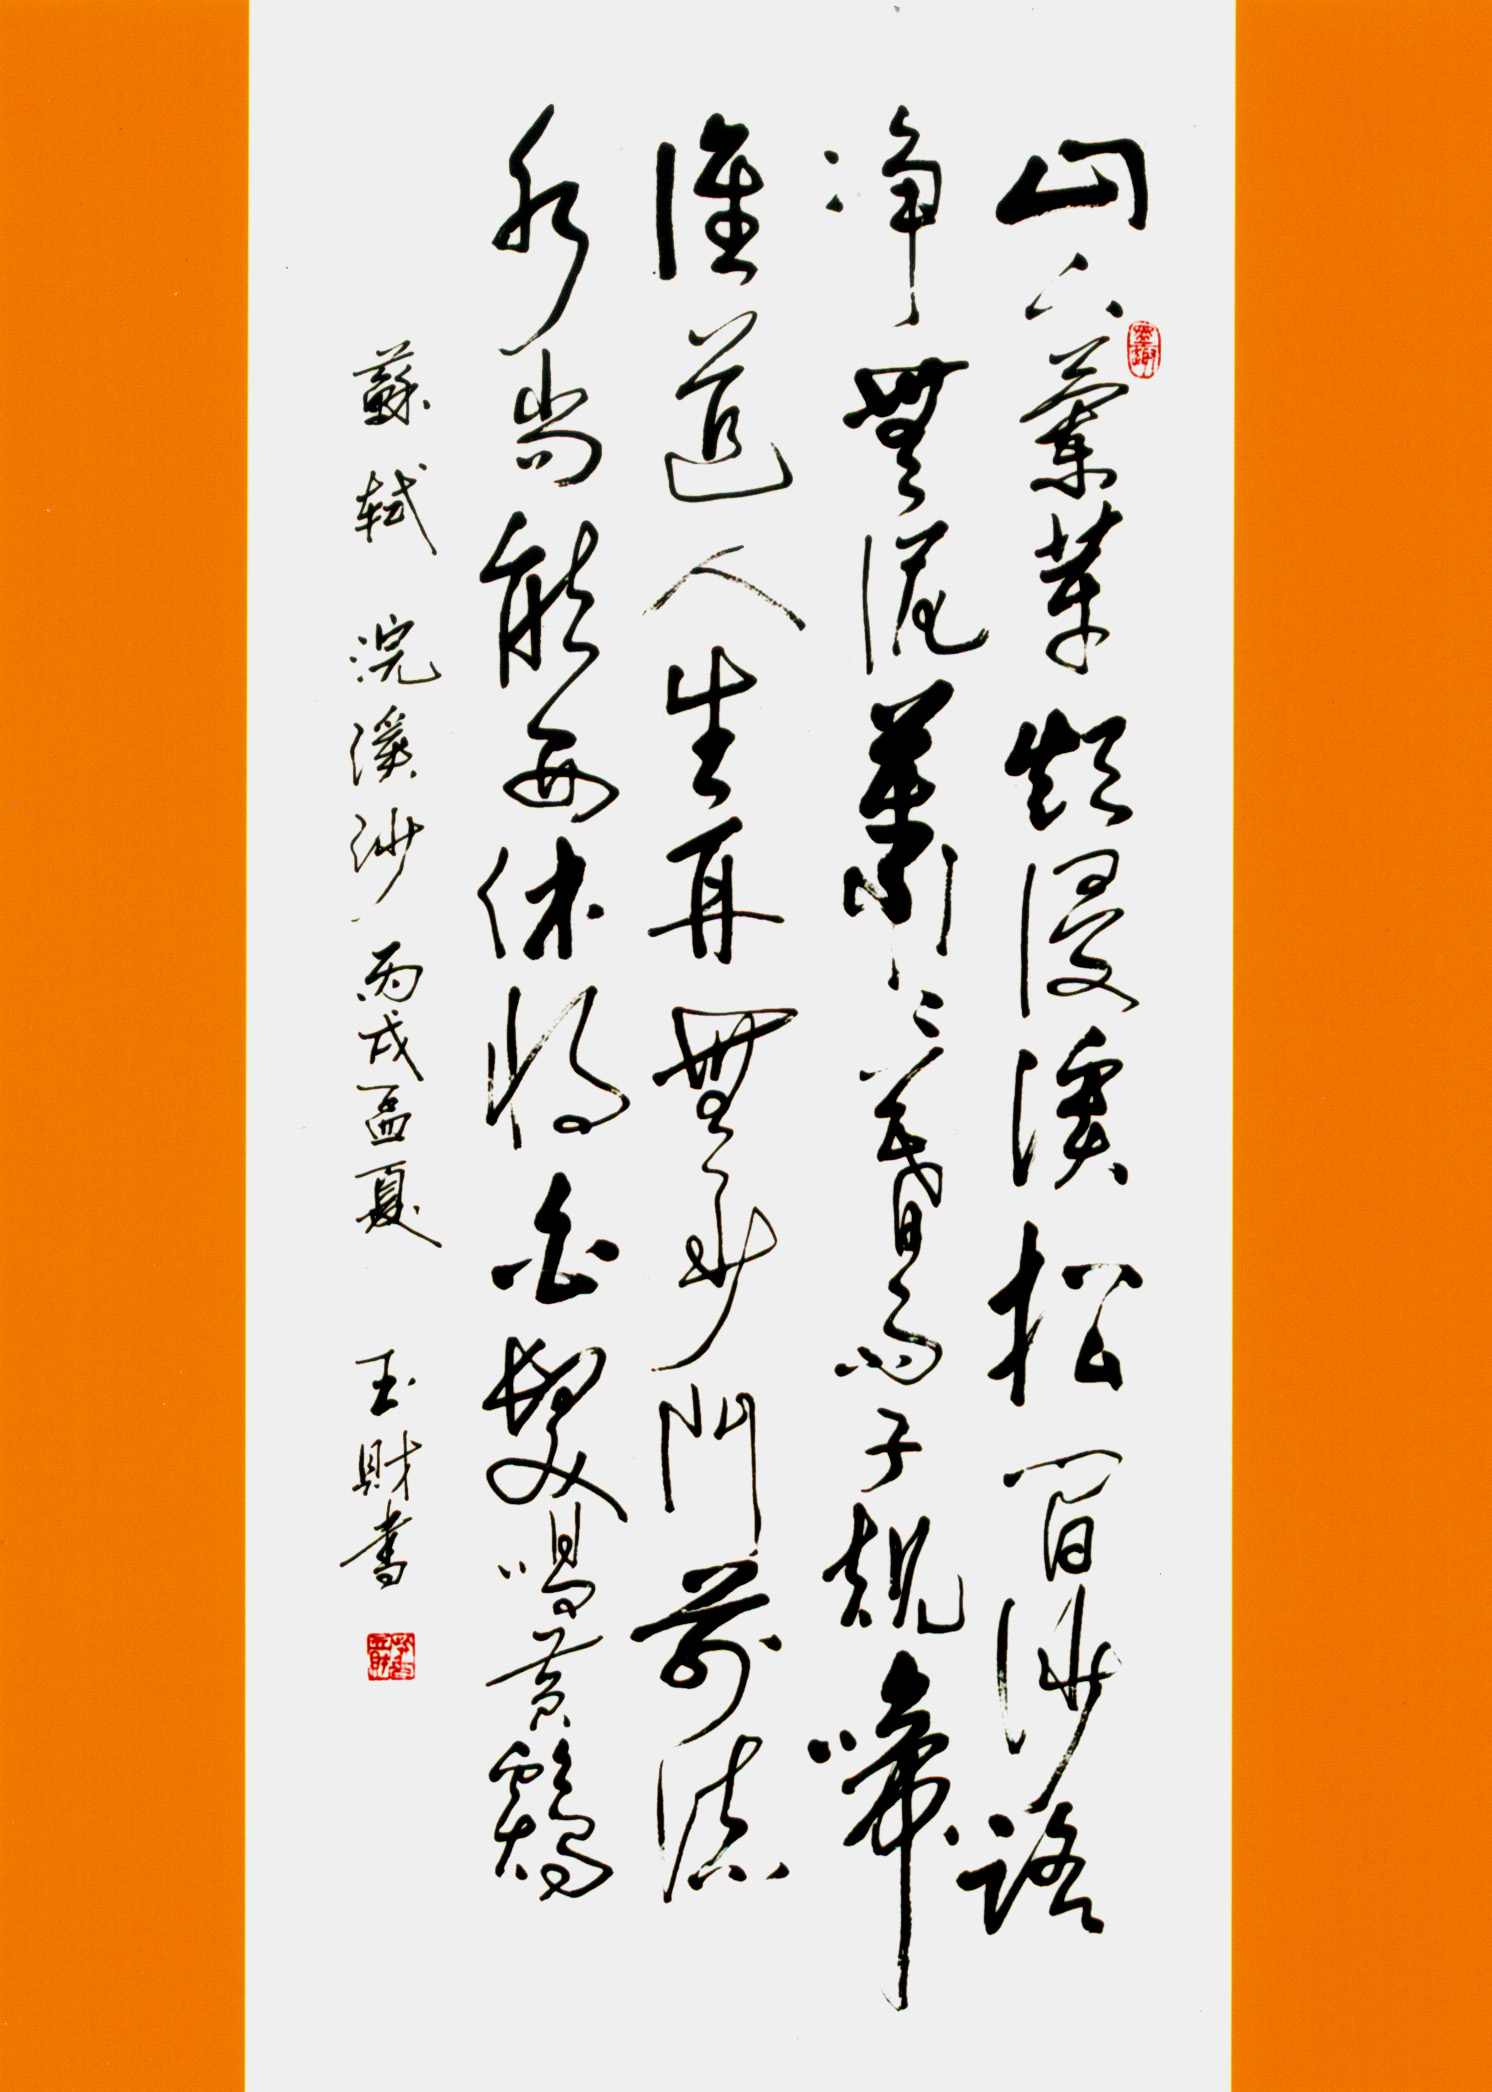 山下蘭芽短浸溪松間沙路
净無泥蕭〻暮雨子規啼
誰道人生再無少門前流
水尚能西休將白髮唱黃鷄
蘇軾 浣溪沙 丙戌孟夏 玉財書